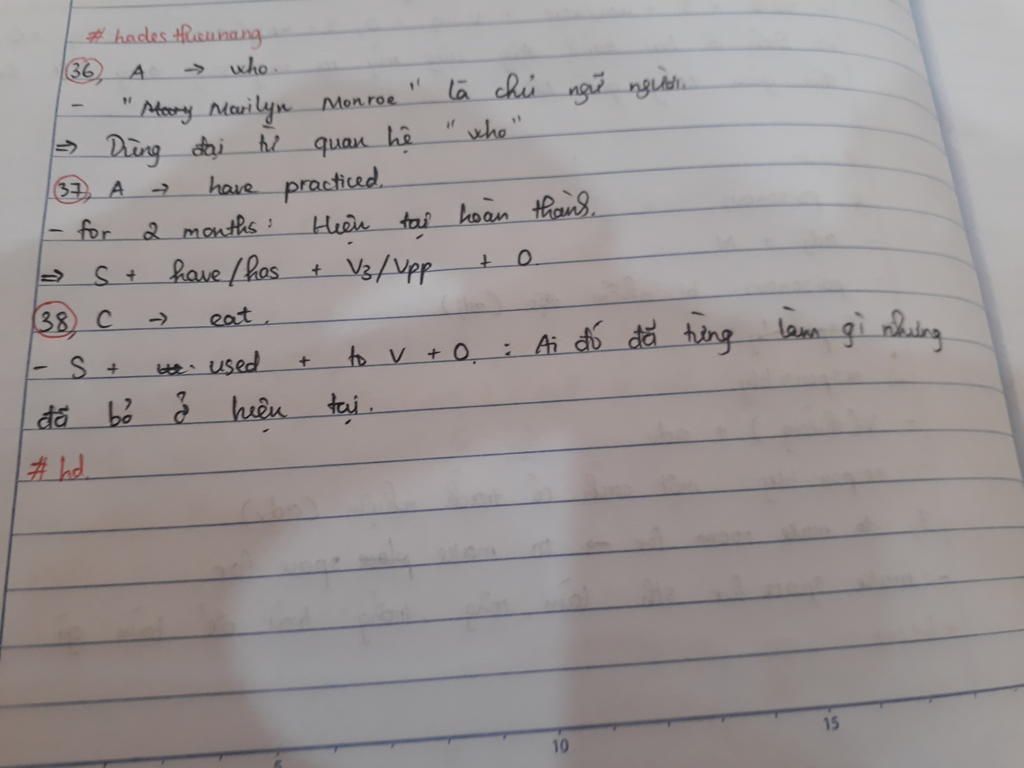 # hades thieunang
36, A → who.
- " Marilyn Monroe " là chủ ngữ người.
⇒ Dùng đại từ quan hệ " who "
37, A → have practiced.
- for 2 months: Hiện tại hoàn thành.
⇒ S + have/has + V3/Vpp + O
38, C → eat.
- S + used + to V + O. : Ai đó đã từng làm gì nhưng
đã bỏ ở hiện tại.
# hd.
5 10 15